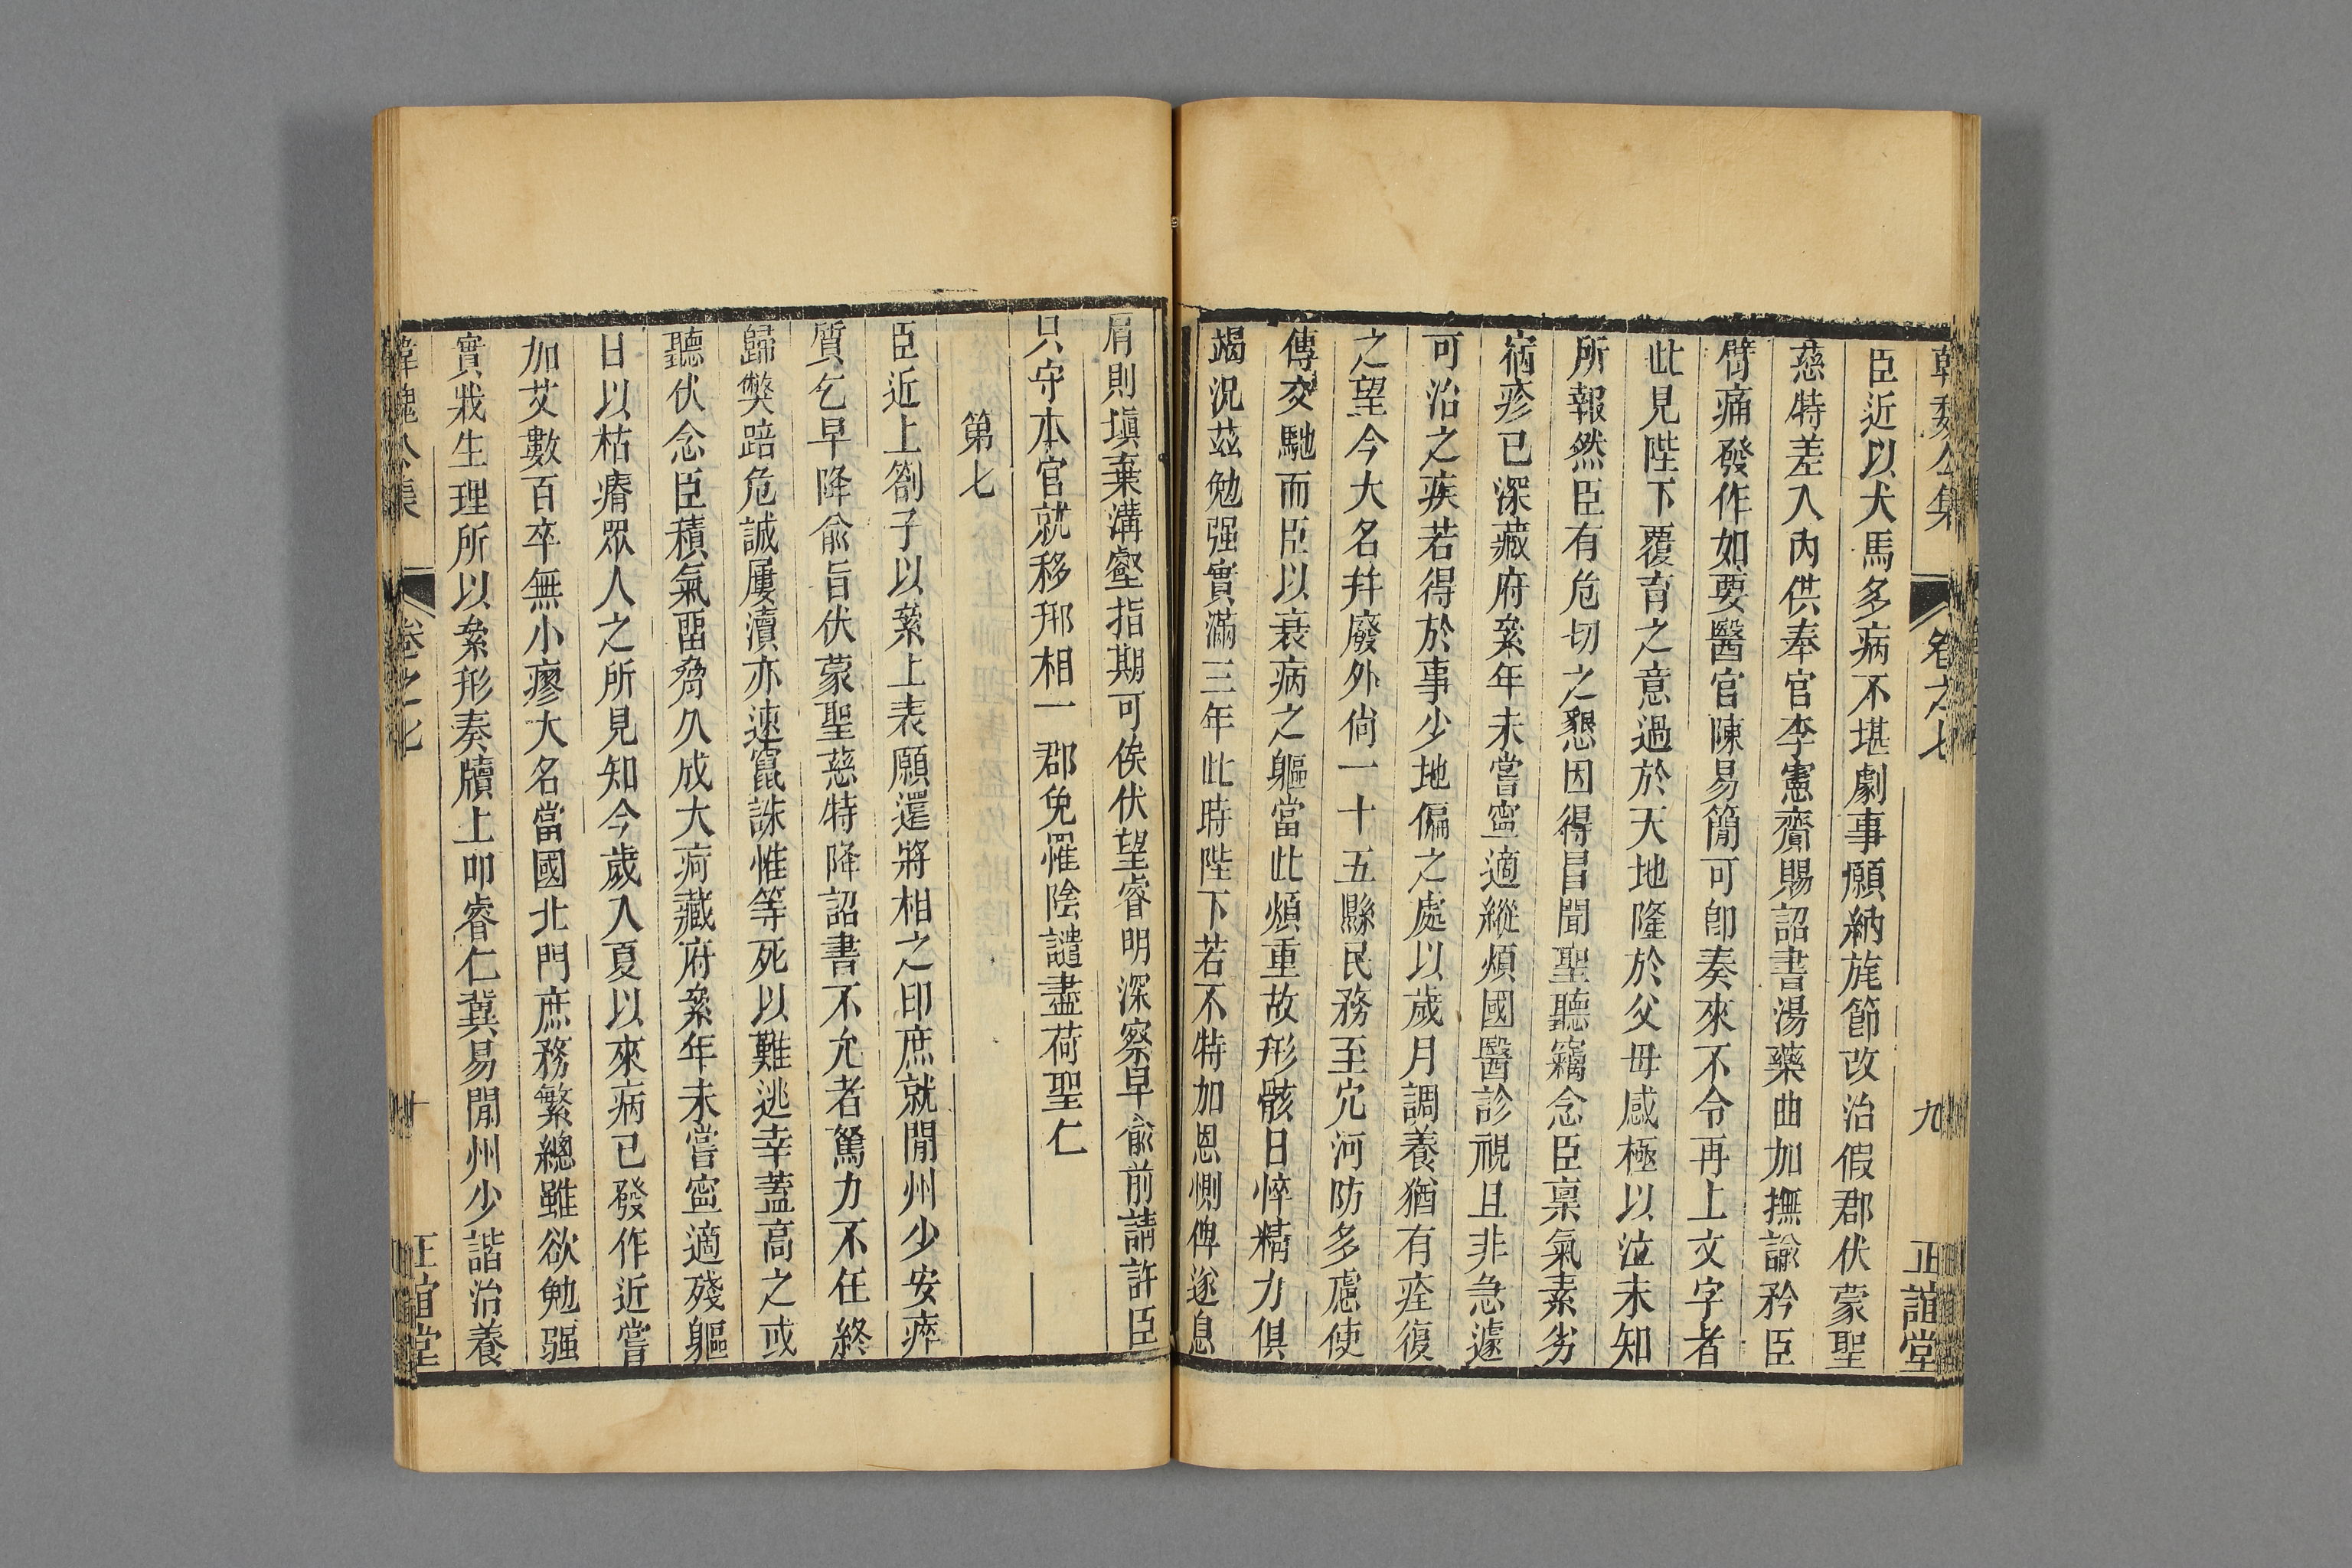 韓魏公集 卷之七 九 正誼堂
臣近以犬馬多病不堪劇事願納旄節改治假郡伏蒙聖
慈特差入內供奉官李憲齎賜詔書湯藥曲加撫諭矜臣
臂痛發作如要醫官陳易簡可卽奏來不令再上文字者
此見陛下覆育之意過於天地隆於父母感極以泣未知
所報然臣有危切之懇因得冒聞聖聽竊念臣稟氣素劣
宿疹已深藏府絫年未嘗寍適縱煩國醫診視且非急遽
可治之疾若得於事少地偏之處以歲月調養猶有痊復
之望今大名并廢外尙一十五縣民務至宂河防多慮使
傳交馳而臣以衰病之軀當此煩重故形骸日悴精力俱
竭況茲勉强實滿三年此時陛下若不特加恩惻俾遂息
肩則塡棄溝壑指期可俟伏望睿明深察早兪前請許臣
只守本官就移邢相一郡免罹陰譴盡荷聖仁
第七
臣近上劄子以絫上表願還將相之印庶就閒州少安瘁
質乞早降兪旨伏蒙聖慈特降詔書不允者駑力不任終
歸獘踣危誠屢瀆亦速竄誅惟等死以難逃幸蓋高之或
聽伏念臣積氣畱脅久成大痾藏府絫年未嘗寍適殘軀
日以枯瘠眾人之所見知今歲入夏以來病已發作近嘗
加艾數百卒無小瘳大名當國北門庶務繁總雖欲勉强
實戕生理所以絫形奏牘上叩睿仁冀易閒州少諧治養
韓魏公集 卷之七 十 正誼堂